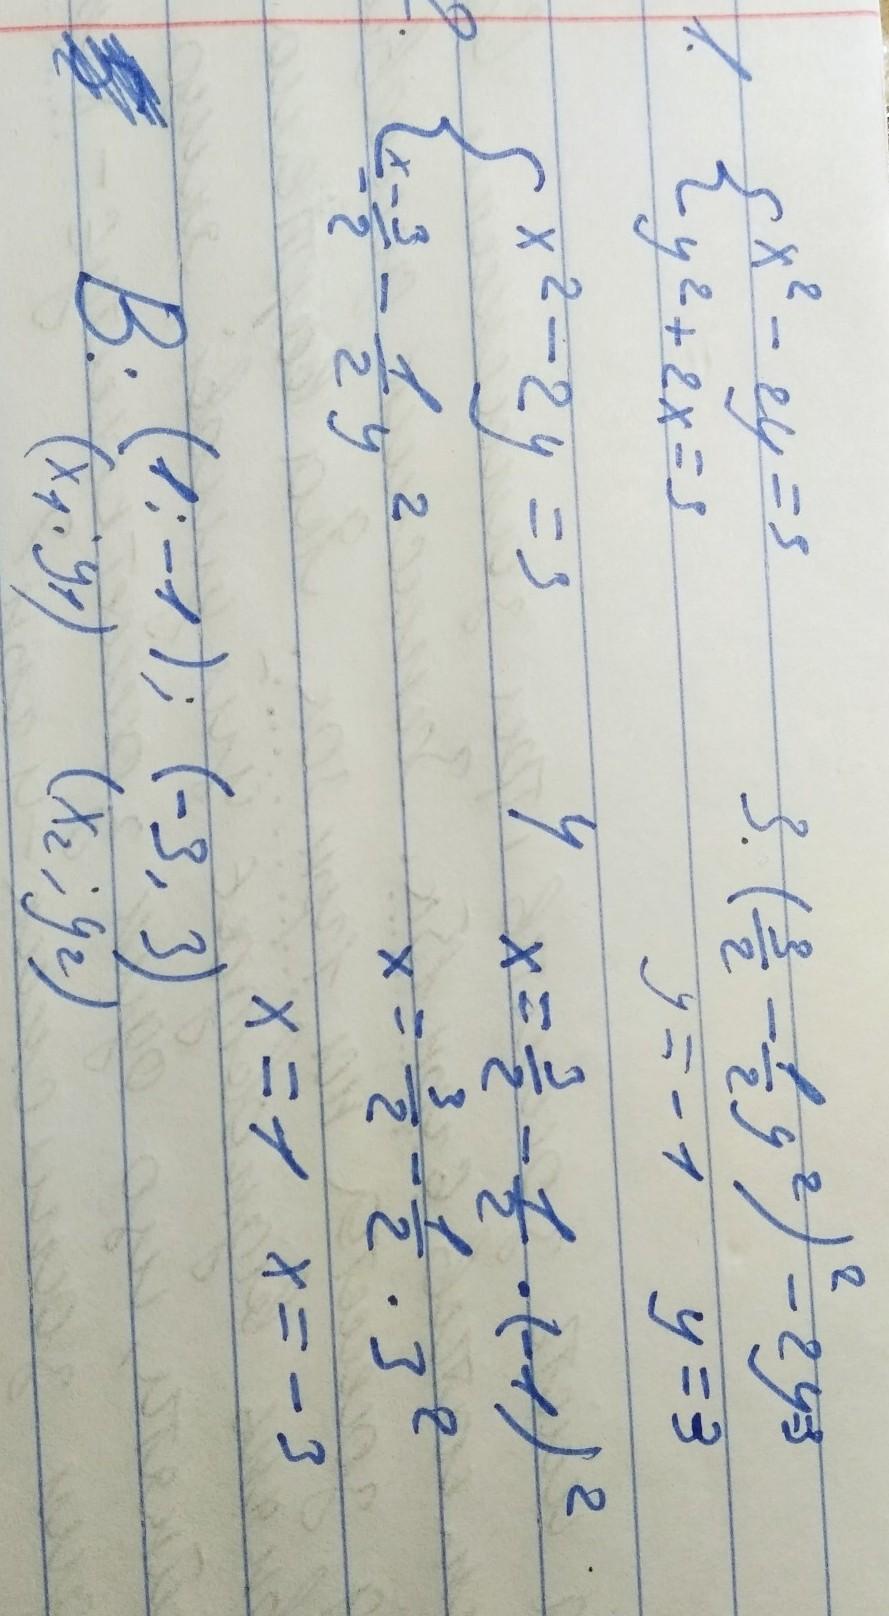 1. { x² - 2y = 3
{ y² + 2x = 3
2. { x² - 2y = 3
{ x = 3/2 - 1/2 y²
3. (3/2 - 1/2 y²)² - 2y = 3
y = -1 y = 3
y x = 3/2 - 1/2 · (-1)²
x = 3/2 - 1/2 · 3²
x = 1 x = -3
В: (1; -1); (-3, 3)
(x₁; y₁) (x₂; y₂)